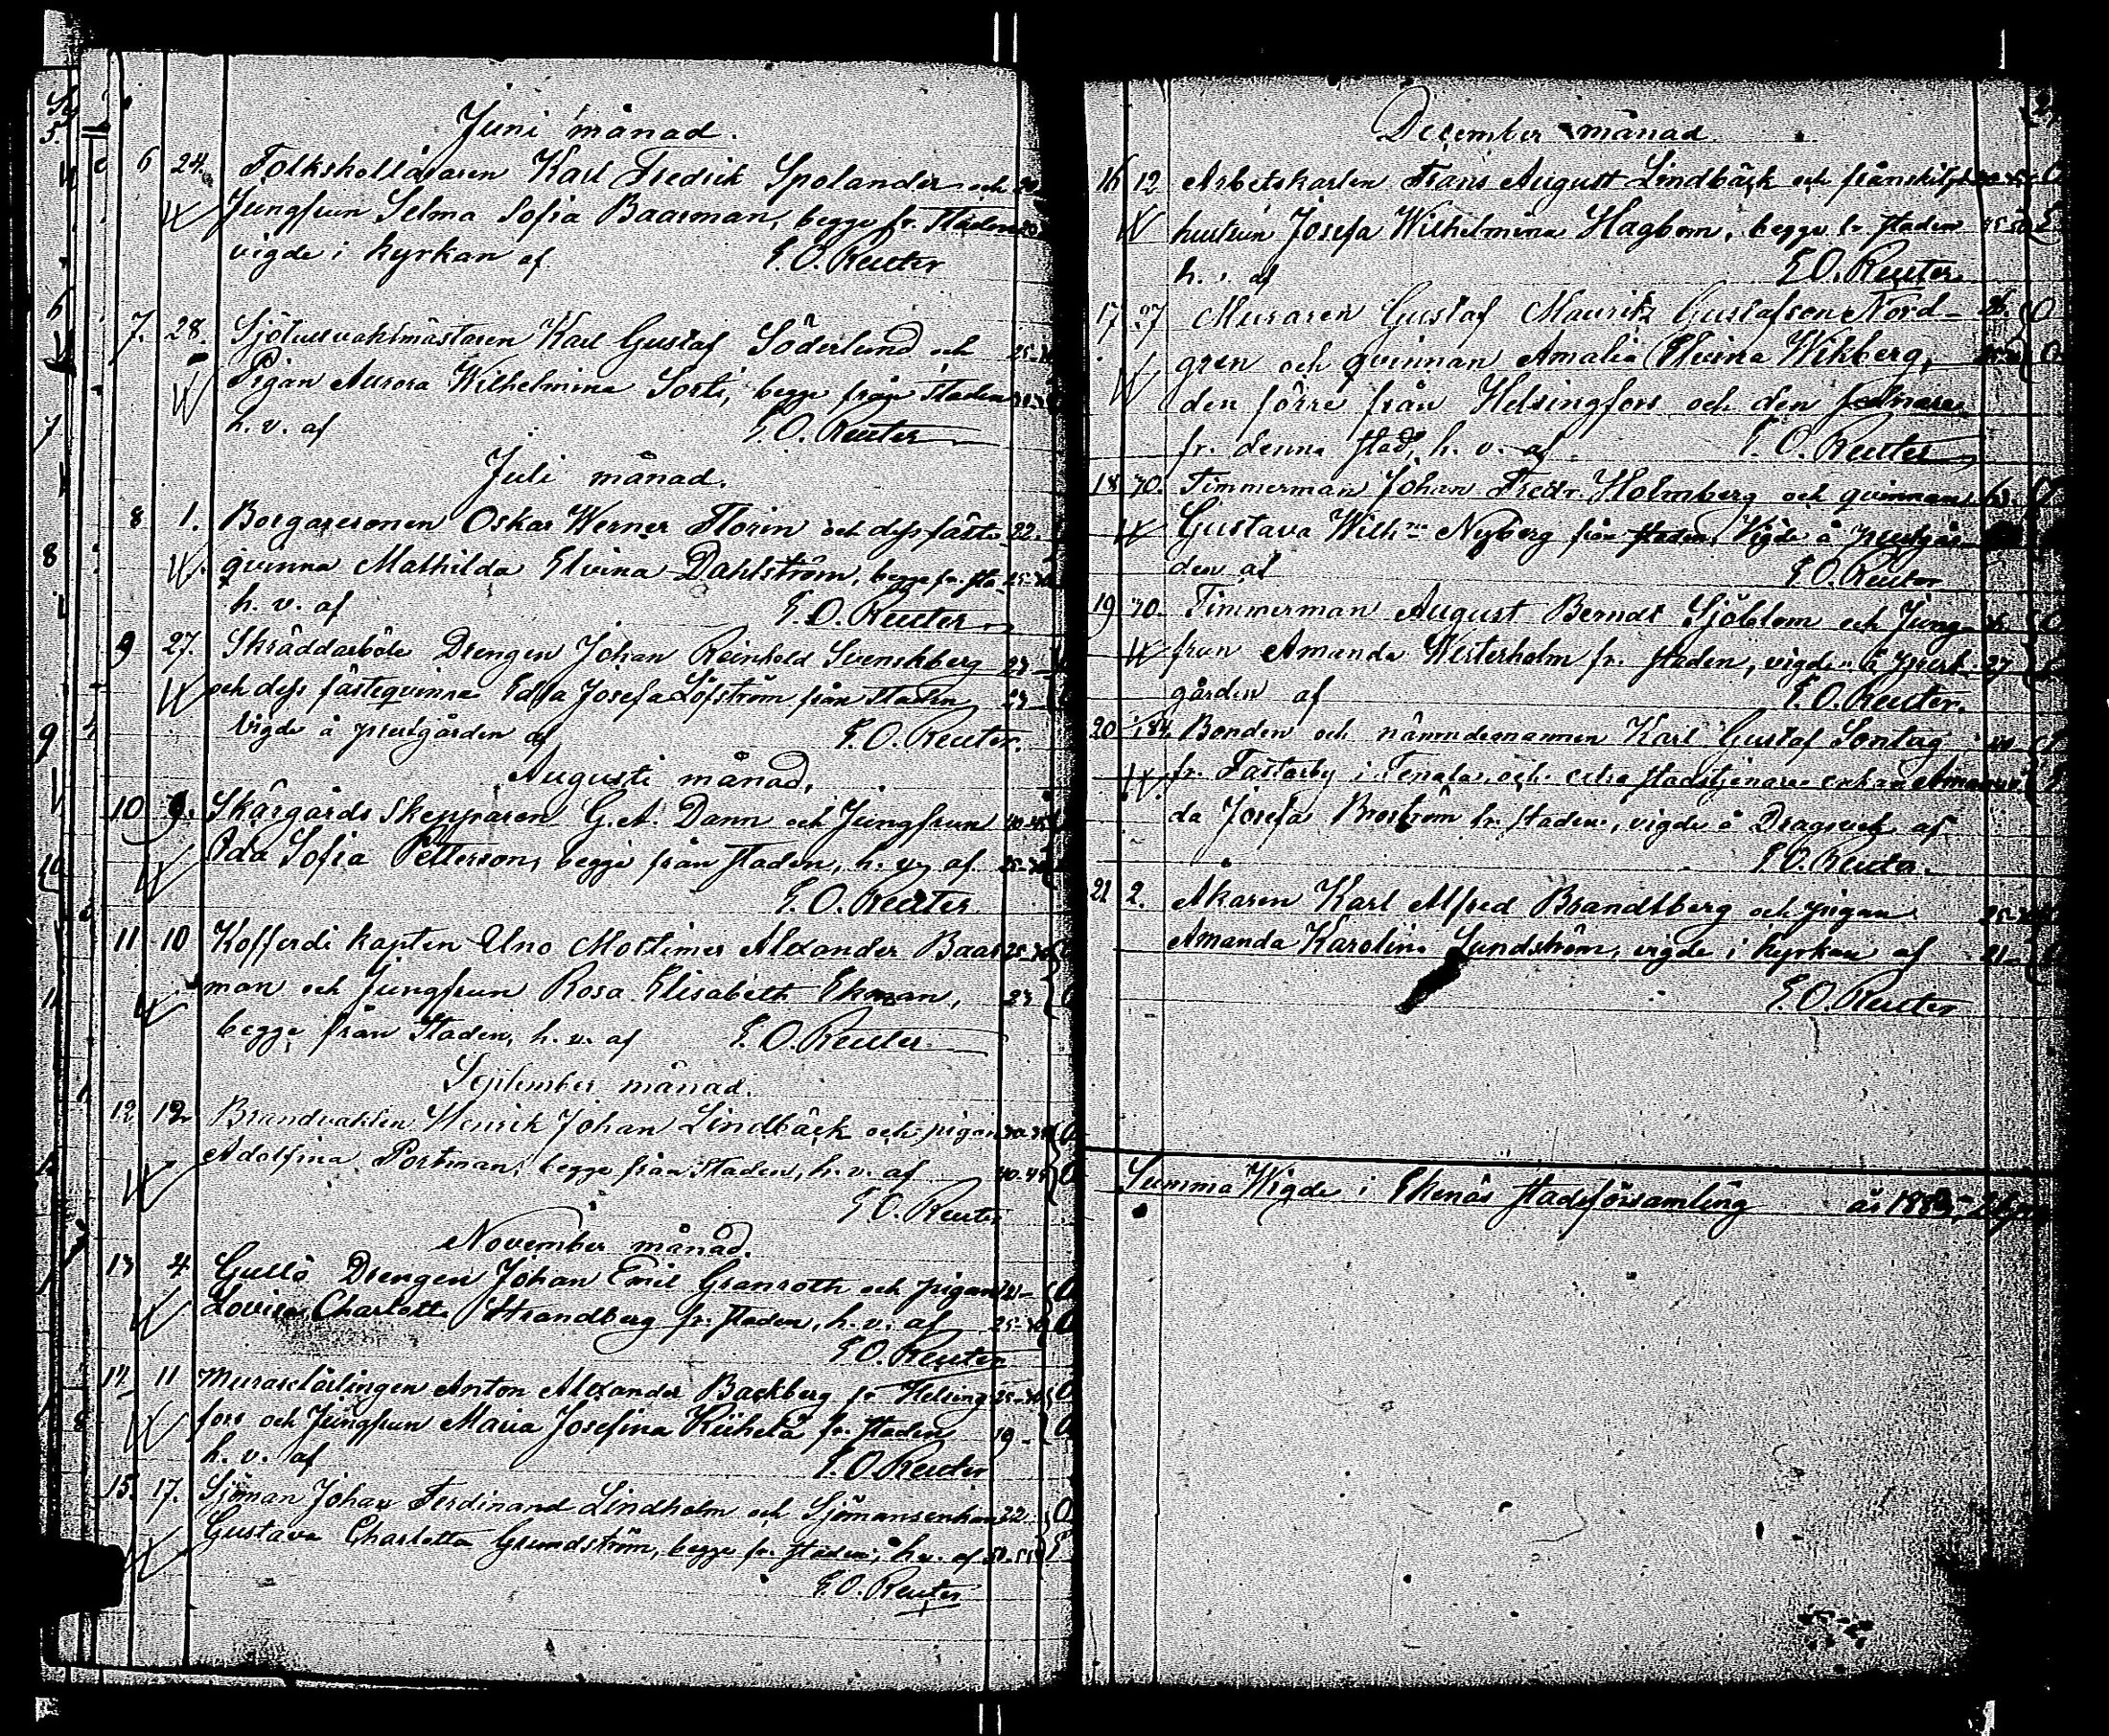 Juni månad.
6 24. Folkskolläraren Karl Fredrik Spolander och
Jungfrun Selma Sofia Baarman, begge fr. staden
vigde i kyrkan af E. O. Reuter
7. 28. Karl Gustaf Söderlund och
Pigan Aurora Wilhelmina begge från staden
h. v. af E. O. Reuter
Juli månad.
8 1. Borgaresonen Oskar Werner Florin och dess fäste- 22.
qvinna Mathilda Elvina Dahlström, begge fr. sta-
h. v. af E. O. Reuter
9 27. Skräddarböle Drengen Johan Reinhold Svenskberg
och dess fästeqvinna Edla Josefa Löfström från staden
vigde å prestgården af E. O. Reuter.
Augusti månad.
10 9. Skärgårds Skepparen G. A. Dann och Jungfrun
Ida Sofia Petterson, begge från staden, h. v. af
E. O. Reuter
11 10 Kofferdi kapten Uno Mortimer Alexander Baar
man och Jungfrun Rosa Elisabeth Ekman,
begge från staden, h. v. af E. O. Reuter
September månad.
12. 12 Brandvakten Henrik Johan Lindbäck och pigan
Adolfina Portman, begge från staden, h. v. af 40-45
E. O. Reuter
November månad.
13 4 Gullö Drengen Johan Emil Granroth och pigan
Lovisa Charlotta Strandberg fr. staden, h. v. af
E. O. Reuter
14 11 Murarelärlingen Anton Alexander Backberg fr Helsing
fors och Jungfrun Maria Josefina fr. staden 19-
h. v. af E. O. Reuter
15. 17. Sjöman Johan Ferdinand Lindholm och Sjömansenkan 22
Gustava Charlotta Grundström, begge fr. staden, h. v. af
E. O. Reuter
December månad.
16 12 Arbetskarlen Frans August Lindbäck och frånskilda
hustrun Josefa Wilhelmina Hagbom, begge fr. staden
h. v. af E. O. Reuter
17 27 Muraren Gustaf Mauritz Gustafson Nord-
gren och qvinnan Amalia Elvina Wikberg,
den förre från Helsingfors och den sednare
fr. denna stad, h. v. af E. O. Reuter
18 30. Timmerman Johan Fredr. Holmberg och qvinnan
Gustava Wilh:na Nyberg från staden, Vigde å prestgår-
den af E. O. Reuter
19 30. Timmerman August Berndt Sjöblom och Jung-
frun Amanda Westerholm fr. staden, vigde å prest- 27
gården af E. O. Reuter.
20 Bonden och nämndemannen Karl Gustaf Sontag
fr. i Tenala och extra stadstjenare enkan Aman
da Josefa Broström fr. staden, vigde å Dragsvik af
E. O. Reuter.
21 2. Åkaren Karl Alfred Brandtberg och pigan
Amanda Karolina Sundström, vigde i kyrkan af
E. O. Reuter
Summa Wigde i Ekenäs stadsförsamling år